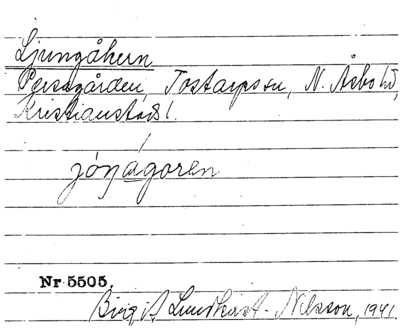 Ljungåkern
Persgården, Tostarps sn, N. Åsbo hd,
Kristianstads l.
jóŋágoren
Nr 5505.
Birgit Lundkvist-Nilsson, 1941.